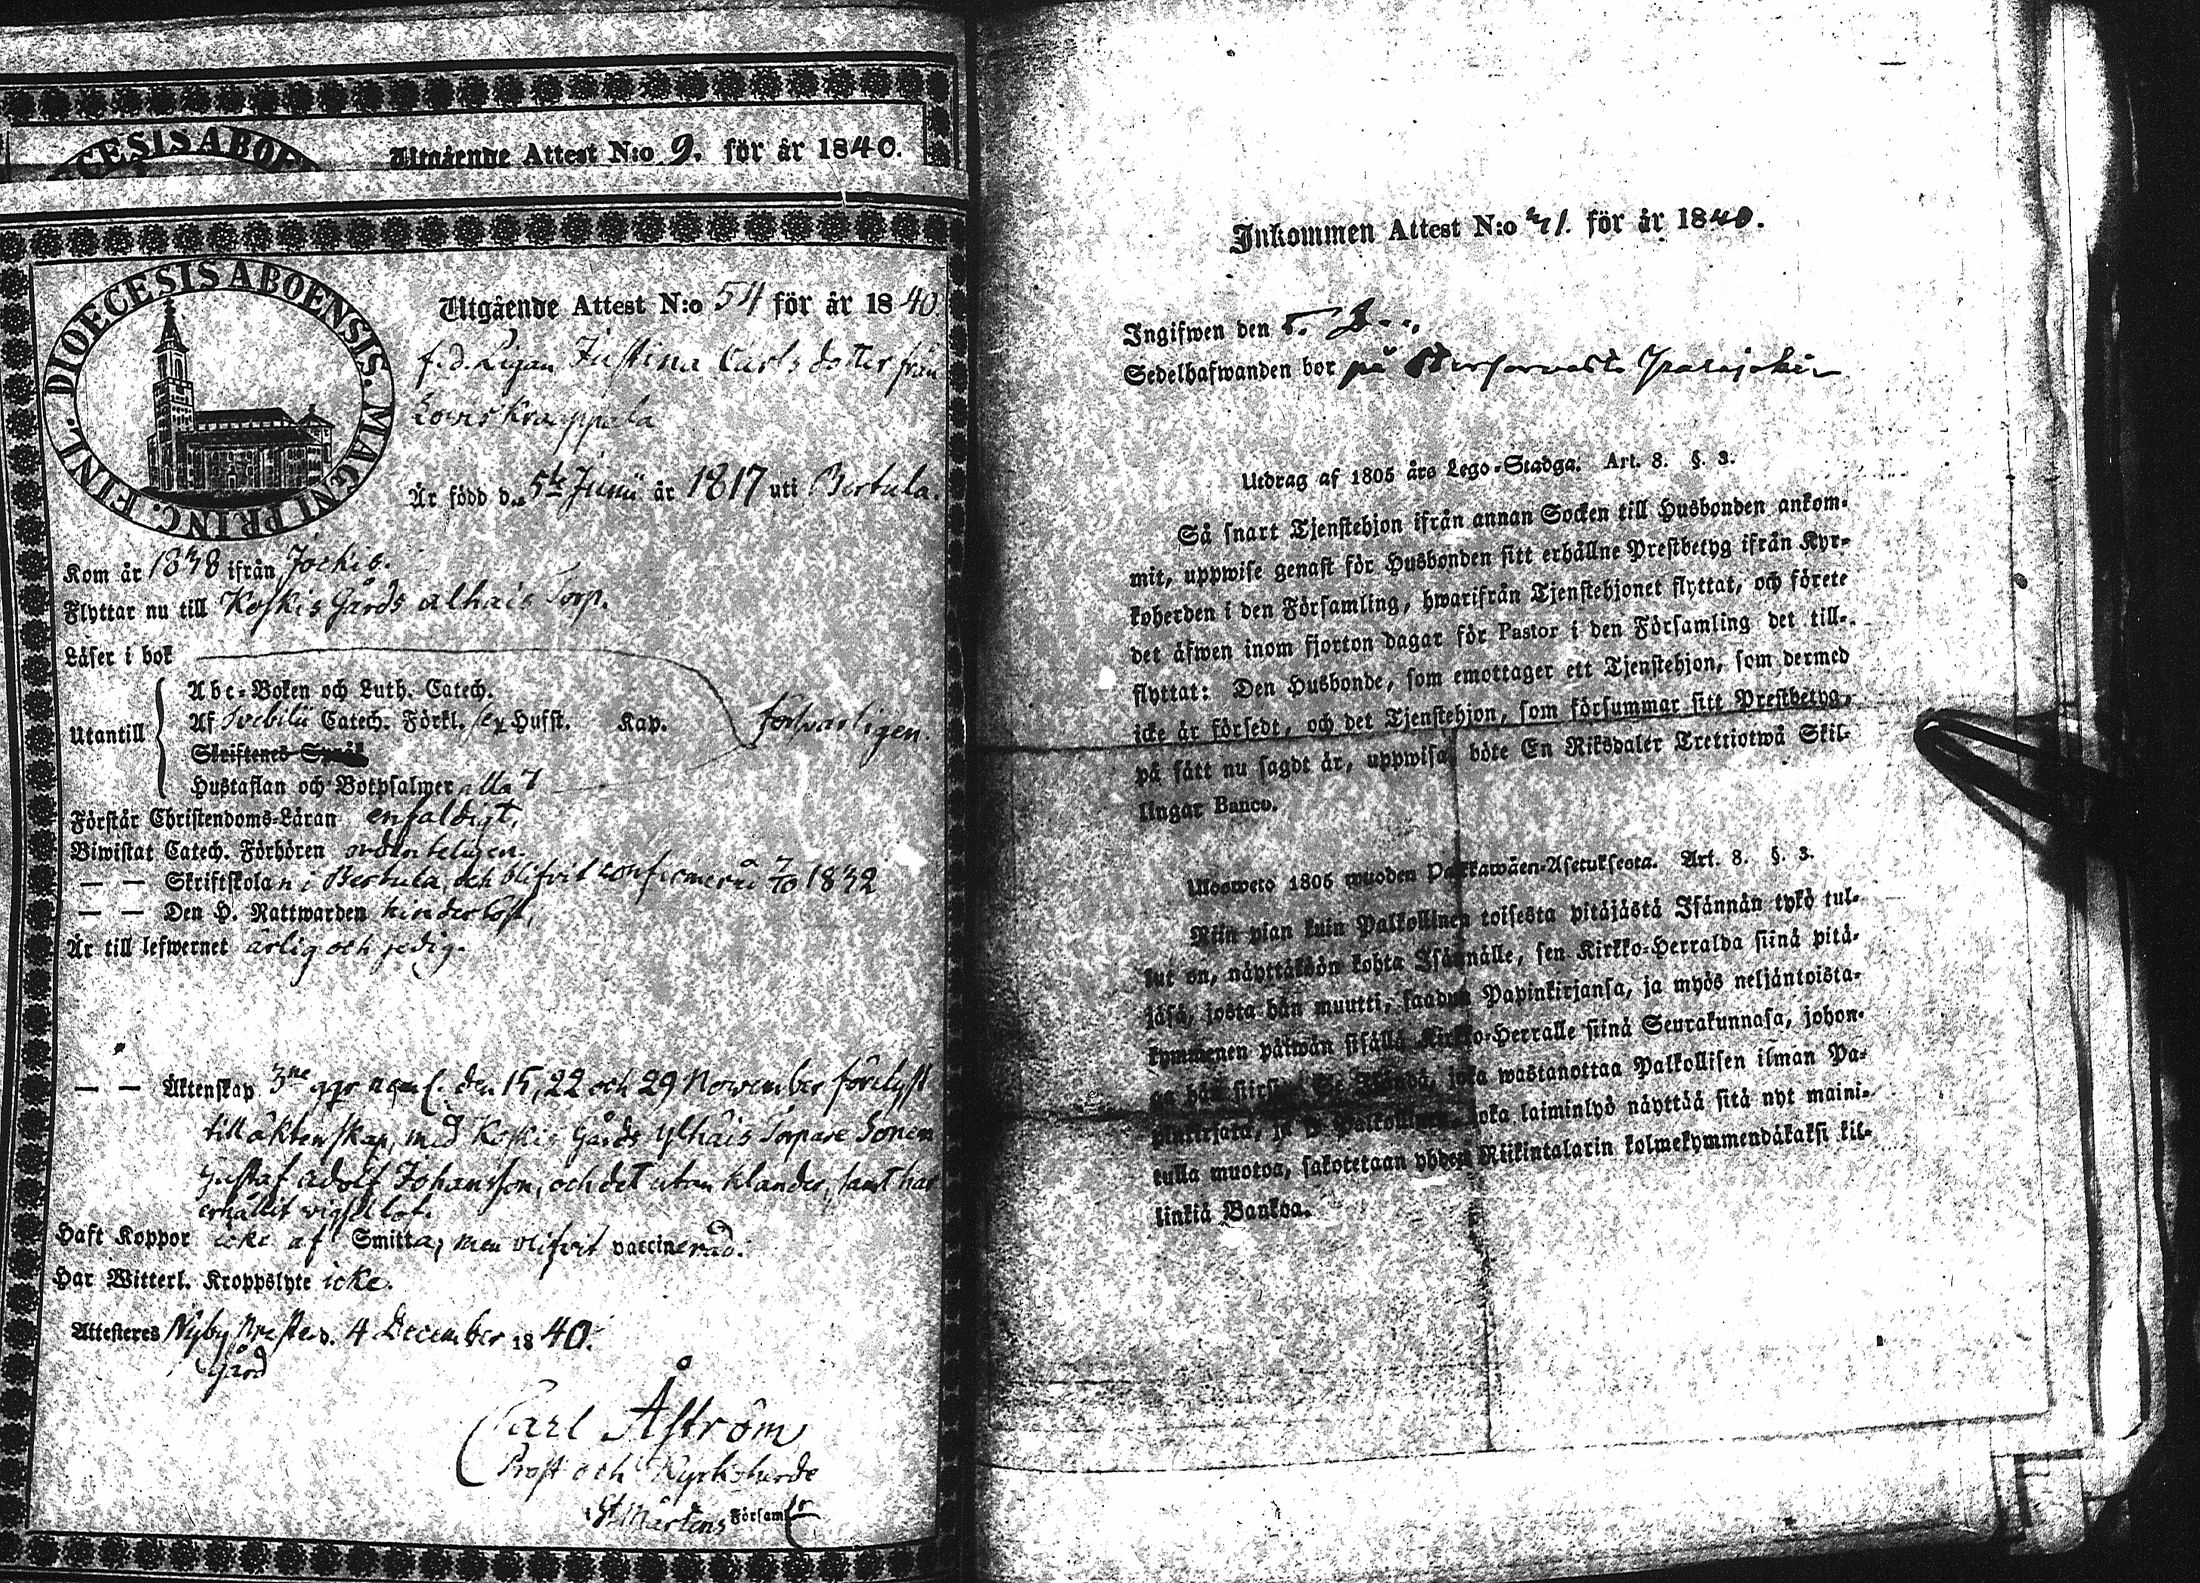 CESIS ABOE
Utgående Attest N:o 9. för år 1840.
DIOECESIS ABOENSIS. MAGNI PRINC. FINL.
Utgående Attest N:o 54 för år 1840
f. d. Pigan Justina Carlsdotter från
Krappala
Är född d. 5te Junii år 1817 uti Bertula.
Kom år 1838 ifrån Jockis.
Flyttar nu till Koskis Gårds alhais Torp.
Läser i bok
Utantill
Abc-Boken och Luth. Catech.
Af Svebilii Catech. Förkl. sex Hufst. Kap. försvarligen.
Skriftenes Språk
Hustaflan och Botpsalmer alla 7
Förstår Christendoms-Läran enfaldigt,
Biwistat Catech. Förhören ordenteligen.
— — Skriftskolan i Bertula, och blifvit confirmerad 1832
— — Den H. Nattwarden hinderlöst,
Är till lefwernet ärlig och sedig.
— — Äktenskap 3ne ggr den 15, 22 och 29 November förelyst
till äktenskap, med Koskis Gårds Ylhäis Torpare Sonen
Gustaf Adolf Johansson, och det utan klander, samt har
erhållit
Haft Koppor icke af Smitta, men blifvit vaccinerad.
Har Witterl. Kroppslyte icke.
Attesteres Nyby Preste d. 4 December 1840.
Gård
Carl Åström
Prost och Kyrkoherde
St Mårtens Församl
Inkommen Attest N:o 71. för år 1840.
Ingifwen den
Sedelhafwanden bor på
Utdrag af 1805 års Lego-Stadga. Art. 8. §. 3.
Så snart Tjenstehjon ifrån annan Socken till Husbonden ankom-
mit, uppwise genast för Husbonden sitt erhållne Prestbetyg ifrån Kyr-
koherden i den Församling, hwarifrån Tjenstehjonet flyttat, och förete
det äfwen inom fjorton dagar för Pastor i den Församling det till-
flyttat: Den Husbonde, som emottager ett Tjenstehjon, som dermed
icke är försedt, och det Tjenstehjon, som försummar sitt Prestbetyg,
på sätt nu sagdt är, uppwisa, böte En Riksdaler Trettiotwå Skil-
lingar Banco.
Ulosweto 1805 wuoden Palkkawäen-Asetuksesta. Art. 8. §. 3.
Niin pian kuin Palkollinen toisesta pitäjästä Isännän tykö tul-
lut on, näyttäköön kohta Isännälle, sen Kirkko-Herralda siinä pitä-
jäsä, josta hän muutti, saadun Papinkirjansa, ja myös neljäntoista-
kymmenen päiwän sisällä Kirkko-Herralle siinä Seurakunnasa, johon-
ga hän siirsi: Se Isändä, joka wastanottaa Palkollisen ilman Pa-
pinkirjata, ja se Palkollinen, joka laiminlyö näyttää sitä nyt maini-
tulla muotoa, sakotetaan yhden Riikintalarin kolmekymmendäkaksi kil-
linkiä Bankoa.